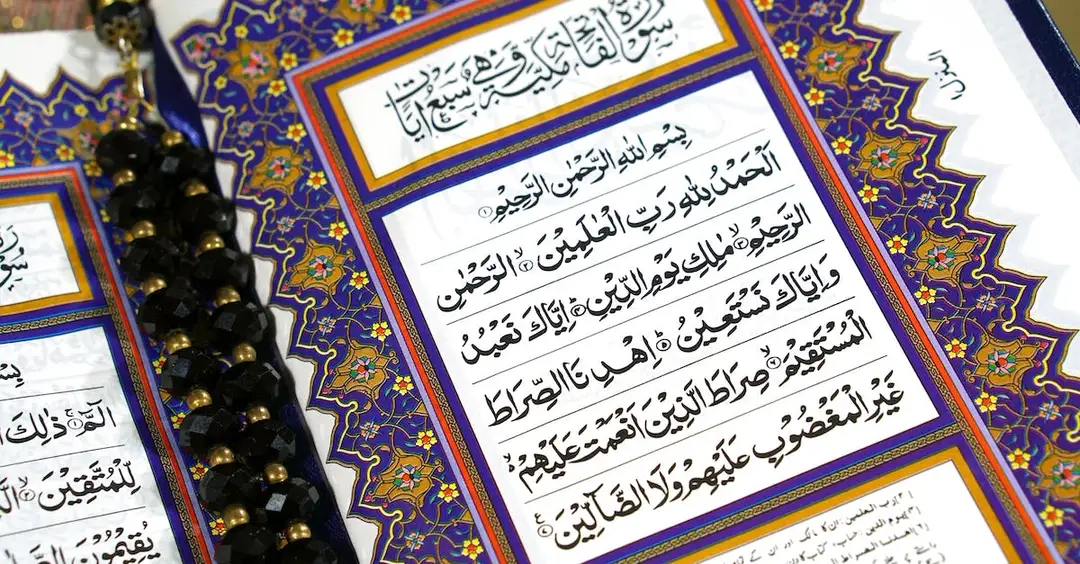 سورة الفاتحة مكية وهي سبع آيات
بِسْمِ اللهِ الرَّحْمٰنِ الرَّحِيْمِ ۝۱
اَلْحَمْدُ لِلّٰهِ رَبِّ الْعٰلَمِيْنَ ۙ۝۲ الرَّحْمٰنِ
الرَّحِيْمِ ۙ۝۳ مٰلِكِ يَوْمِ الدِّيْنِ ؕ۝۴ اِيَّاكَ نَعْبُدُ
وَ اِيَّاكَ نَسْتَعِيْنُ ؕ۝۵ اِهْدِنَا الصِّرَاطَ
الْمُسْتَقِيْمَ ۙ۝۶ صِرَاطَ الَّذِيْنَ اَنْعَمْتَ عَلَيْهِمْ ۙ
غَيْرِ الْمَغْضُوْبِ عَلَيْهِمْ وَلَا الضَّآلِّيْنَ ۝۷
المنزل
بِسْمِ
الٓمّٓ ۚ۝۱ ذٰلِكَ
لِّلْمُتَّقِيْنَ ۙ۝۲
يُقِيْمُوْنَ